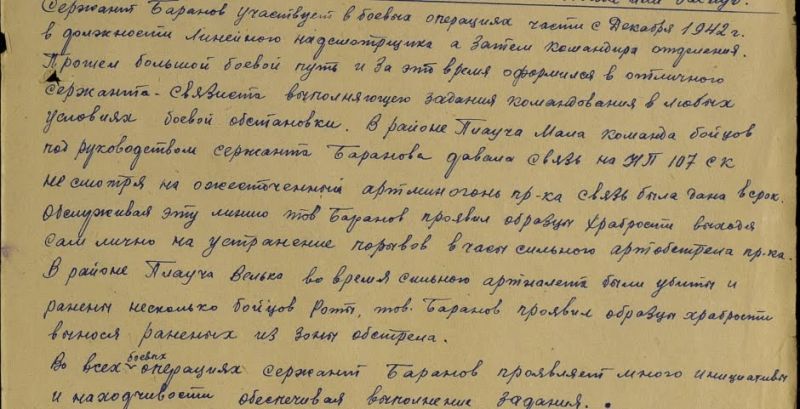 Сержант Баранов участвует в боевых операциях части с Декабря 1942 г.
в должности Линейного надсмотрщика а затем командира отделения.
Прошел большой боевой путь и за это время оформился в отличного
сержанта-связиста выполняющего задания командования в любых
условиях боевой обстановки. В районе Плауча Мала команда бойцов
под руководством сержанта Баранова давала связь на НП 107 СК
не смотря на ожесточенный артминогонь пр-ка связь была дана в срок.
Обслуживая эту линию тов Баранов проявил образцы храбрости выходя
сам лично на устранение порывов в часы сильного артобстрела пр-ка.
В районе Плауча Велько во время сильного артналета были убиты и
ранены несколько бойцов Роты, тов. Баранов проявил образцы храбрости
вынося раненых из зоны обстрела.
Во всех боевых операциях сержант Баранов проявляет много инициативы
и находчивости обеспечивая выполнение задания.